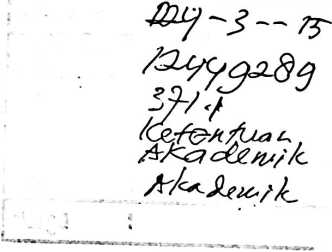 24-3--15
12449289
371.1
Ketentuan
Akademik
Akademik